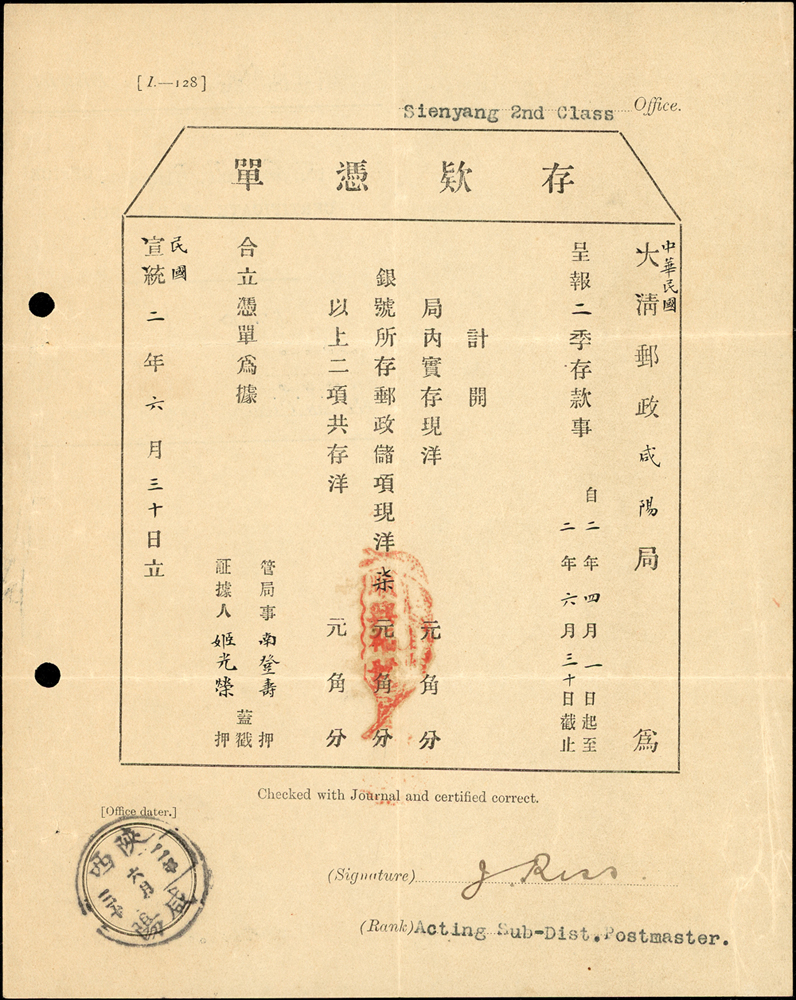 [I.—128]
Sienyang 2nd Class Office.
存欵憑單
中華民國
大清郵政咸陽局為
呈報二季存款事
自二年四月一日起至
二年六月三十日截止
計開
局內實存現洋 元角分
銀號所存郵政儲項現洋柒元角分
以上二項共存洋 元角分
合立憑單為據
管局事南登壽押
蓋戳
証據人姬光榮押
民國
宣統二年六月三十日立
Checked with Journal and certified correct.
[Office dater.]
陝西
六月
咸陽
(Signature) J. Riss
(Rank) Acting Sub-Dist. Postmaster.